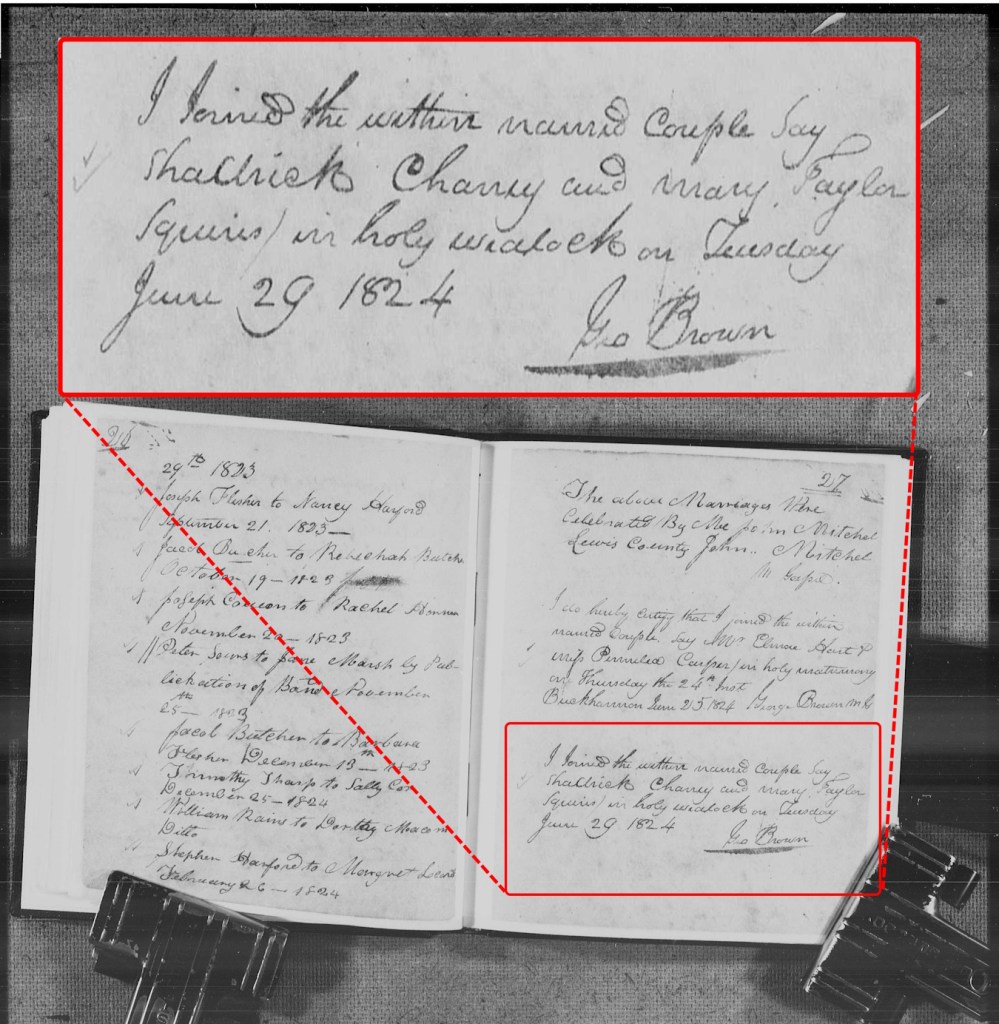 I Joined the within named Couple Say
Shadrick Chaney and mary Taylor
Squires) in holy wedlock on Tuesday
June 29 1824
Geo Brown
29th 1823
Joseph Flesher to Nancy Harford
September 21. 1823—
Jacob Bucher to Rebechah Butche
October 19—1823
Joseph Cowon to Rachel
November 20—1823
Peter to Jane Marsh by Pub
lickation of Bans November
25th— 1823
Jacob Butcher to Barbara
Flesher December 13th—1823
Timmothy Sharp to Sally Cox
December 25—1824
William Rains to Dorthy
Ditto
Stephen Harford to Margret Lewis
February 26—1824
27
The above Marriages Were
Celebrated By Me John Mitchel
Lewis County John.. Mitchel
M
I do hereby certify that I joined the within
named Couple Say Mr Elmore Hart &
miss Permelia Cusper) in holy matrimony
on Thursday the 24th Inst
Buckhannon June 25 1824 George Brown M G
I Joined the within named Couple Say
Shadrick Chaney and mary Taylor
Squires) in holy wedlock on Tuesday
June 29 1824
Geo Brown